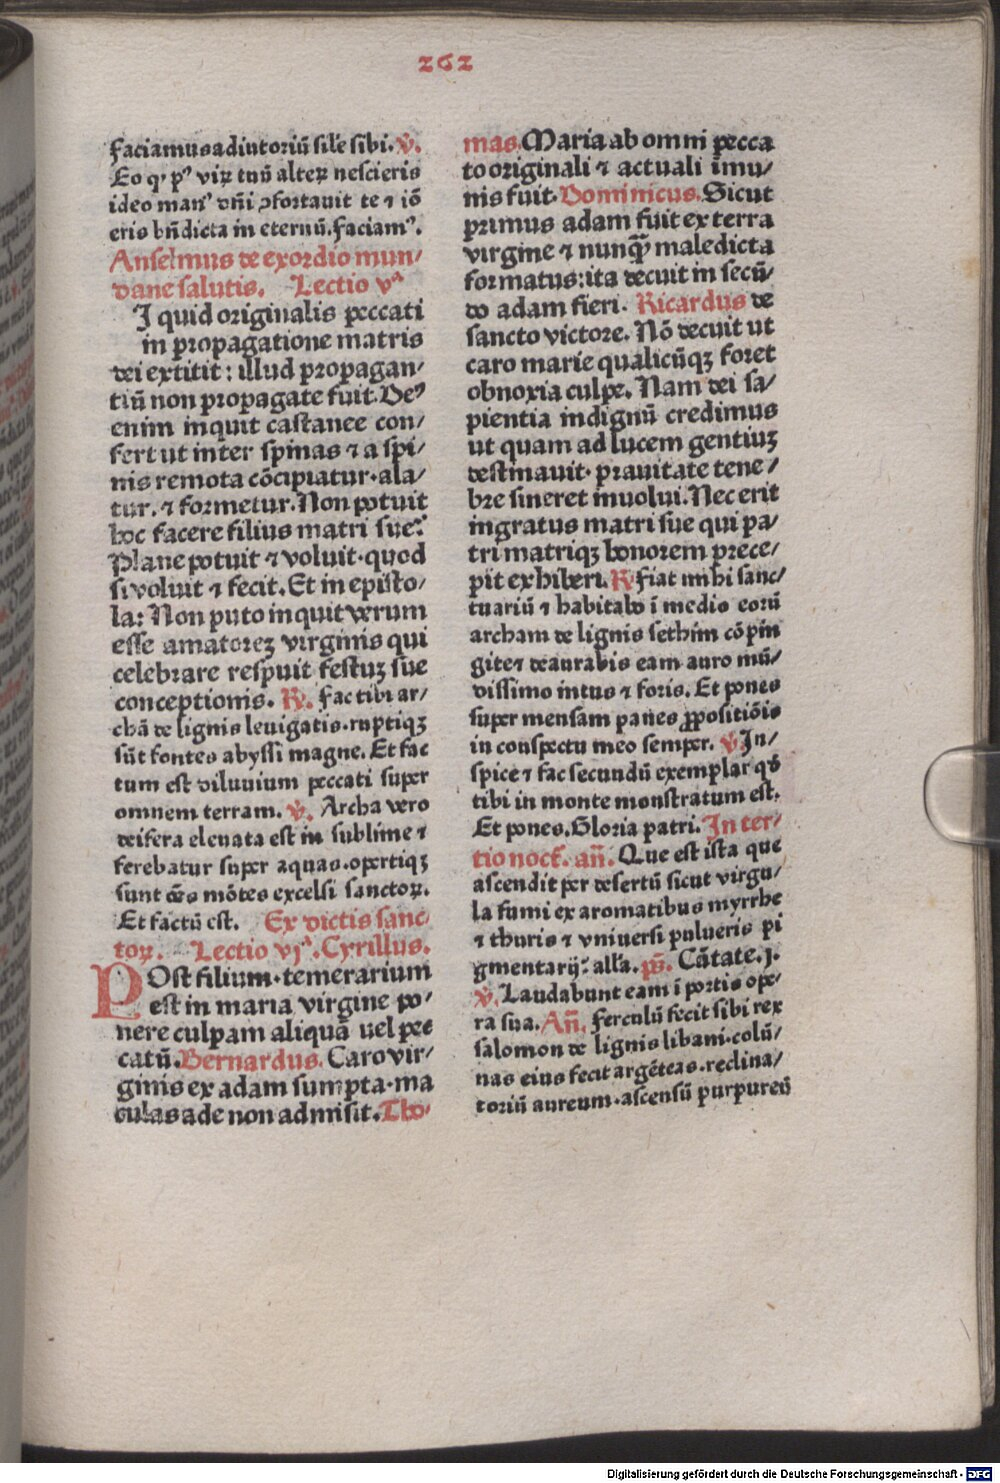 262
faciamus adiutoriū sil'e sibi. ℣.
Eo qꝫ pꝰ viꝝ tuū alteꝝ nescieris
ideo manꝰ dn̄i ꝯfortauit te ⁊ iō
eris bn̄dicta in eternū. faciamꝰ.
Anselmus de exordio mun/
dane salutis. Lectio vᵃ
I quid originalis peccati
in propagatione matris
dei extitit: illud propagan/
tiū non propagate fuit. Deꝰ
enim inquit castanee con/
fert ut inter spinas ⁊ a spi/
nis remota cōcipiatur. ala/
tur. ⁊ formetur. Non potuit
hoc facere filius matri sue?
Plane potuit ⁊ voluit. quod
si voluit ⁊ fecit. Et in episto/
la: Non puto inquit verum
esse amatoreꝫ virginis qui
celebrare respuit festuꝫ sue
conceptionis. ℟. Fac tibi ar/
chā de lignis leuigatis. ruptiqꝫ
sūt fontes abyssi magne. Et fac
tum est diluuium peccati super
omnem terram. ℣. Archa vero
deifera eleuata est in sublime ⁊
ferebatur super aquas. opertiqꝫ
sunt oēs mōtes excelsi sanctoꝝ.
Et factū est. Ex dictis sanc/
toꝝ. Lectio vjᵃ. Cyrillus.
POst filium. temerarium
est in maria virgine po/
nere culpam aliquā uel pec
catū. Bernardus. Caro vir/
ginis ex adam sumpta. ma
culas ade non admisit. Tho/
mas. Maria ab omni pecca
to originali ⁊ actuali īmu/
nis fuit. Dominicus. Sicut
primus adam fuit ex terra
virgine ⁊ nunqꝫ maledicta
formatus: ita decuit in secū/
do adam fieri. Ricardus de
sancto victore. Nō decuit ut
caro marie qualicūqꝫ foret
obnoxia culpe. Nam dei sa/
pientia indignū credimus
ut quam ad lucem gentiuꝫ
destinauit. prauitate tene/
bre sineret inuolui. Nec erit
ingratus matri sue qui pa/
tri matriqꝫ honorem prece/
pit exhiberi. ℟. Fiat mihi sanc/
tuariū ⁊ habitabo ī medio eorū
archam de lignis sethim cōpin
gite ⁊ deaurabis eam auro mū/
dissimo intus ⁊ foris. Et pones
super mensam panes ꝓpositiōis
in conspectu meo semper. ℣. In/
spice ⁊ fac secundū exemplar qd̄
tibi in monte monstratum est.
Et pones. Gloria patri. In ter/
tio noct̄. an̄. Que est ista que
ascendit per desertū sicut virgu/
la fumi ex aromatibus myrrhe
⁊ thuris ⁊ vniuersi pulueris pi
gmentarij: all'a. ps̄. Cātate. j.
℣. Laudabunt eam ī portis ope/
ra sua. An̄. Ferculū fecit sibi rex
salomon de lignis libani. colū/
nas eius fecit argēteas. reclina/
toriū aureum. ascensū purpureū
Digitalisierung gefördert durch die Deutsche Forschungsgemeinschaft - DFG